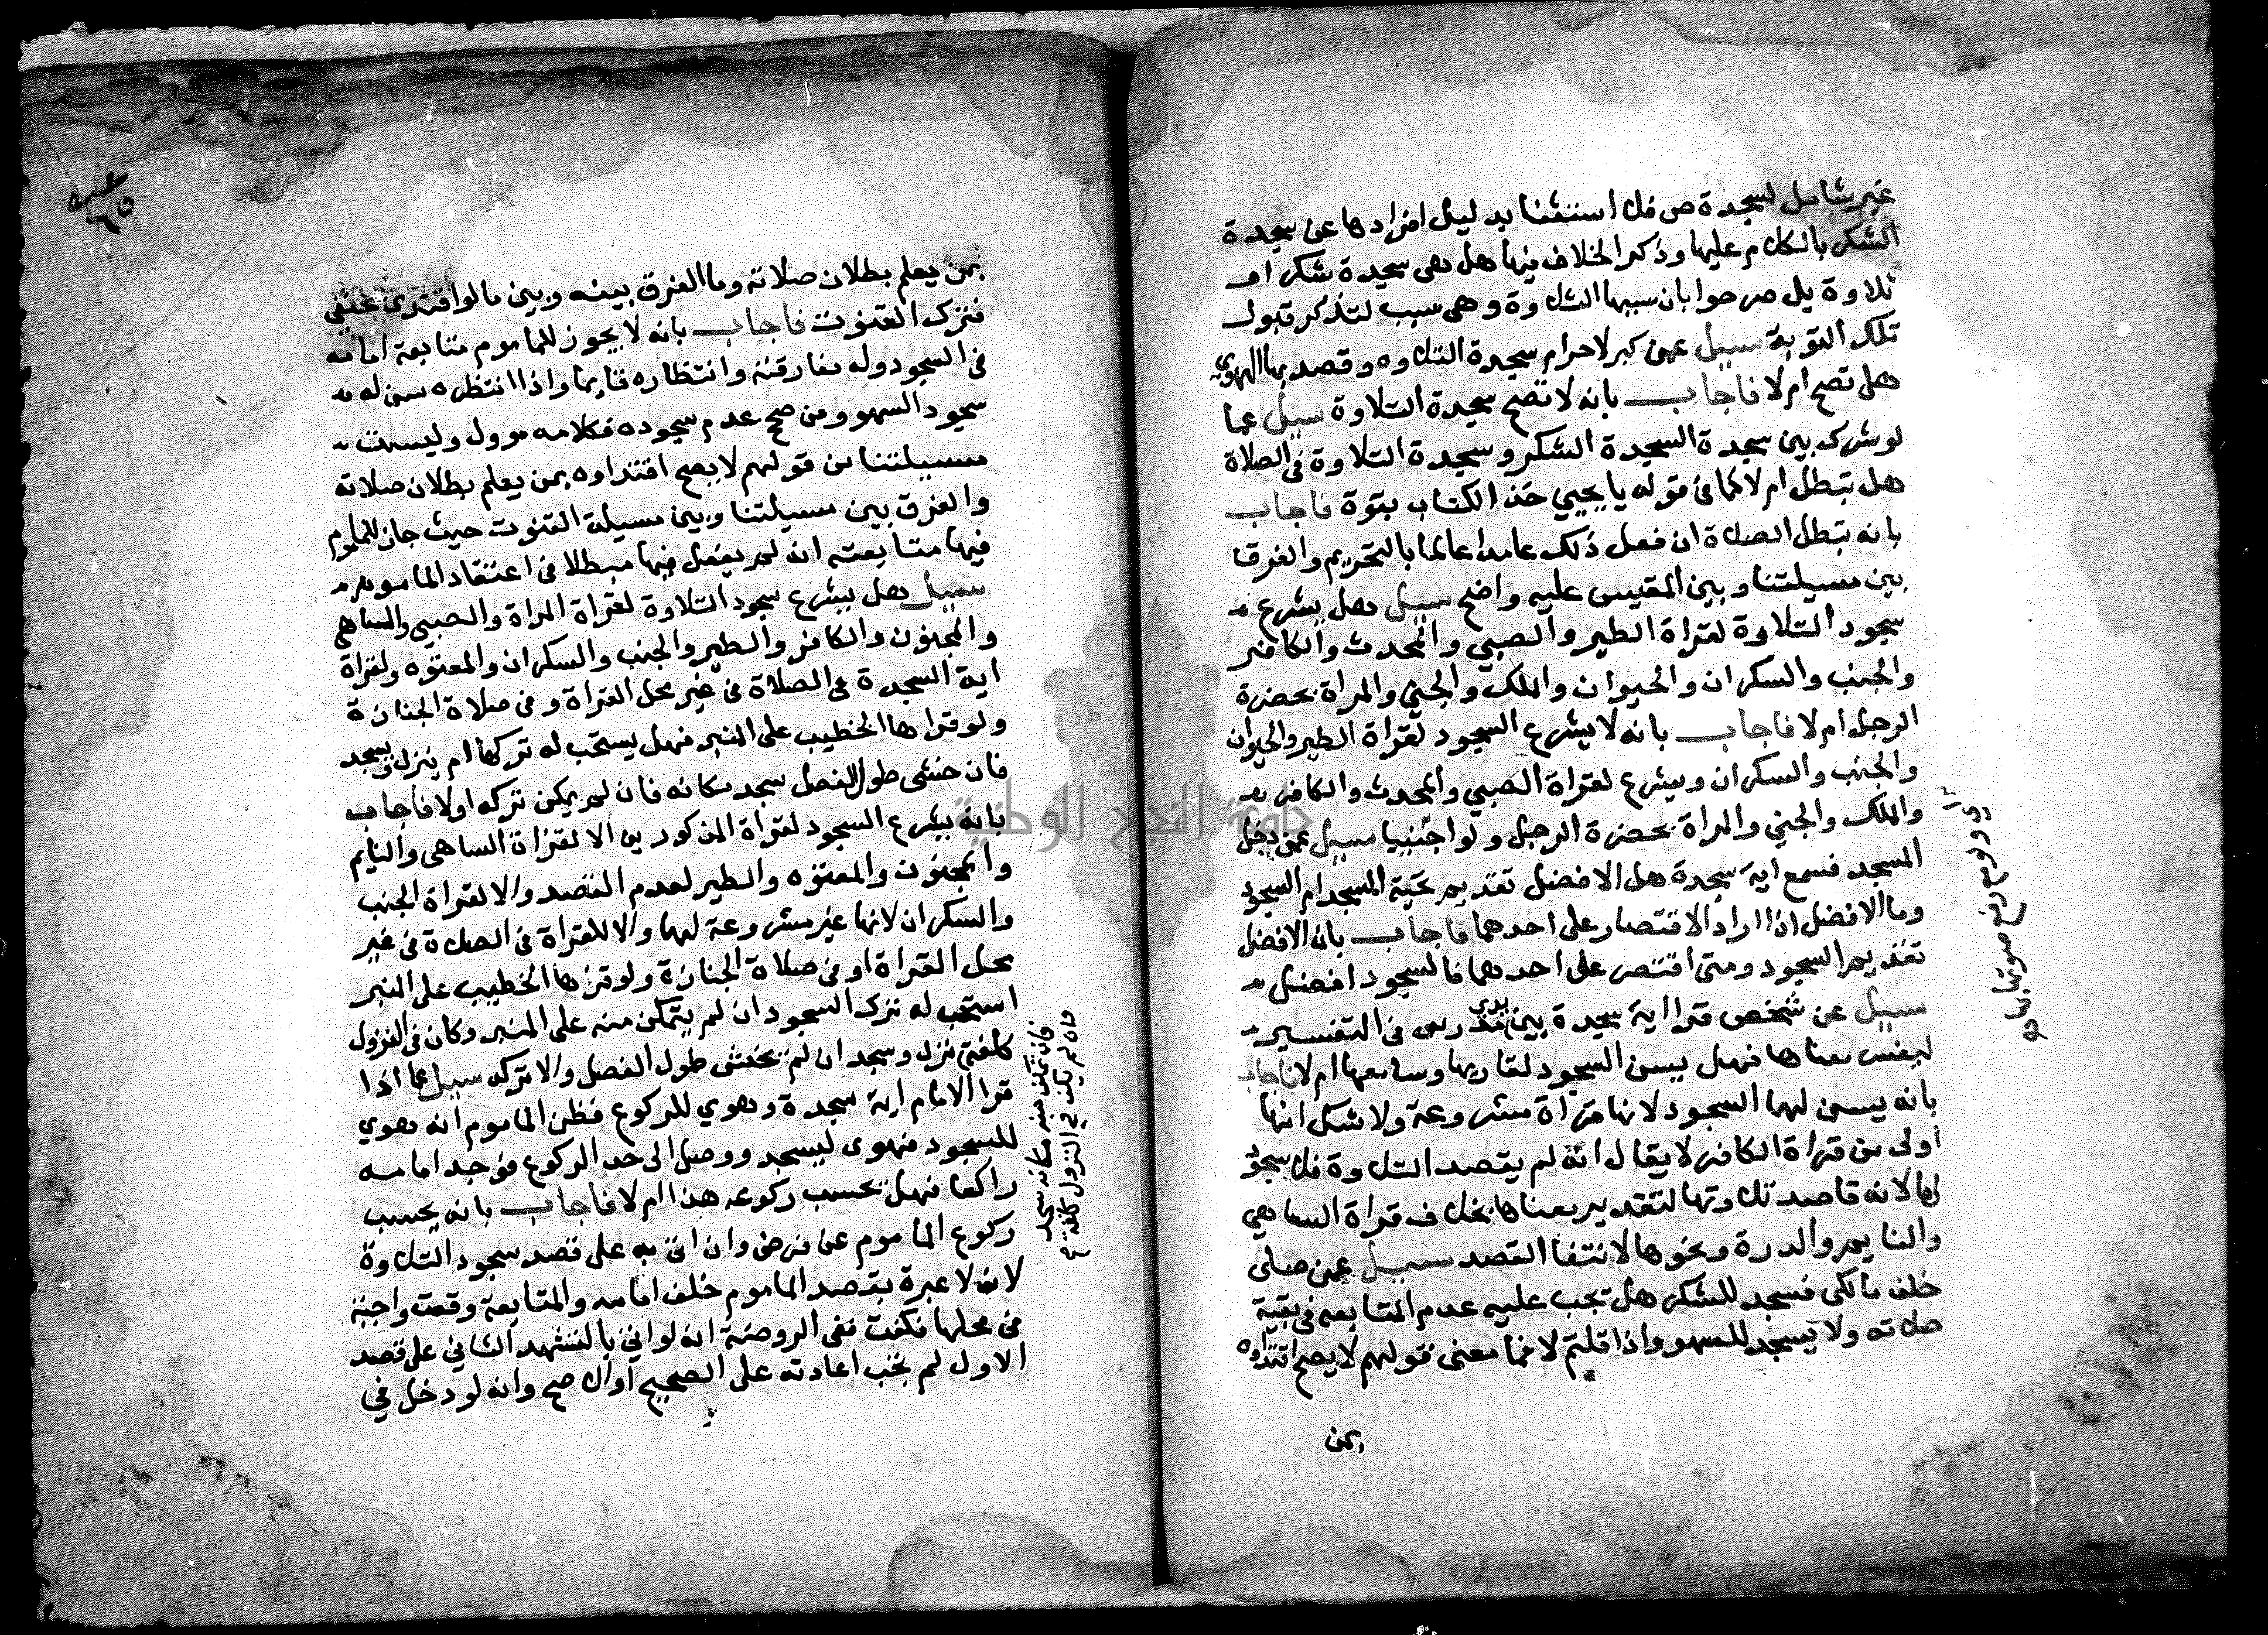 غير شامل لسجدة ص فلا استثنا بدليل افرادها عن سجدة
الشكر بالكلام عليها وذكر الخلاف فيها هل هي سجدة شكر او
تلاوة بل صرحوا بان سببها التلاوة وهي سبب لتذكر قبول
تلك التوبة سيل عمن كبر لاحرام سجدة التلاوه وقصد بها الهوي
هل تصح ام لا فاجاب بانه لا تصح سجدة التلاوة سيل عما
لو شرك بين سجدة السجدة الشكر وسجدة التلاوة في الصلاة
هل تبطل ام لا كما في قوله يا يحيي خذ الكتاب بقوة فاجاب
بانه تبطل الصلاة ان فعل ذلك عامدا عالما بالتحريم والفرقا
بين مسيلتنا وبين المقيس عليه واضح سيل هل يشرع
سجود التلاوة لقراة الطير والصبي والمحدث والكافر
والجنب والسكران والحيوان والملك والجني والمراة بحضرة
الرجل ام لا فاجاب بانه لا يشرع السجود لقراة الطير والحيوان
والجنب والسكران ويشرع لقراة الصبي والمحدث والكافر
والملك والجني والمراة بحضرة الرجل ولو اجنبيا سيل عمن دخل
المسجد فسمع اية سجدة هل الافضل تقديم تحية المسجد ام السجود
وما الافضل اذا اراد الاقتصار على احدهما فاجاب بان الافضل
تقديم السجود ومتى اقتصر على احدهما فالسجود افضل
سيل عن شخص قرا اية سجدة بين يدي مدرس في التفسير
ليفسر معناها فهل يسن السجود لقاريها وسامعها ام لا فاجاب
بانه يسن لهما السجود لانها قراة مشروعة ولا شك انها
اولى من قراة الكافر لا يقال انه لم يقصد التلاوة فلا سجود
لها لانه قاصد تلاوتها لتقدير معناها بخلاف قراة الساهي
والنايم والدرة ونحوها لانتفا القصد سيل عمن صلى
خلف مالكي فسجد للشكر هل تجب عليه عدم المتابعه في بقية
صلاته ولا يسجد للسهو واذا قلتم لا فما معنى قولهم لا يصح اقتداوه
بمن
بمن يعلم بطلان صلاته وما الفرق بينه وبين ما لو اقتدى بحنفي
فترك القنوت فاجاب بانه لا يجوز للماموم متابعة امامه
في السجود وله مفارقته وانتظاره قايما واذا انتظره سن له
سجود السهو ومن صحح عدم سجوده فكلامه موول وليست
مسيلتنا من قولهم لا يصح اقتداوه بمن يعلم بطلان صلاته
والفرق بين مسيلتنا وبين مسيلة القنوت حيث جاز للماموم
فيها متابعته انه لم يفعل فيها مبطلا في اعتقاد الماموم
سيل هل يشرع سجود التلاوة لقراة المراة والصبي والساهي
والمجنون والكافر والطير والجنب والسكران والمعتوه ولقراة
اية السجدة في الصلاة في غير محل القراة وفي صلاة الجنازة
ولو قراها الخطيب على المنبر فهل يستحب له تركها ام ينزل ويسجد
فان خشي طول الفصل سجد مكانه فان لم يمكن تركه او لا فاجاب
بانه يشرع السجود لقراة المذكورين الا لقراة الساهي والنايم
والمجنون والمعتوه والطير لعدم القصد والا لقراة الجنب
والسكران لانها غير مشروعة لهما والا للقراة في الصلاة في غير
محل القراة او في صلاة الجنازة ولو قراها الخطيب على المنبر
استحب له ترك السجود ان لم يتمكن منه على المنبر وكان في النزول
كلفة نزل وسجد ان لم يخش طول الفصل والا تركه سيل عما اذا
قرا الامام اية سجدة وهوي للركوع فظن الماموم انه هوي
للسجود فهوى ليسجد ووصل الى حد الركوع فوجد امامه
راكعا فهل تحسب ركوعه هذا ام لا فاجاب بانه يحسب
ركوع الماموم عن فرض وان اتى به على قصد سجود التلاوة
لانه لا عبرة بقصد الماموم خلف امامه والمتابعة وقعت واجبة
في محلها فكفت ففي الروضة انه لو اتي بالتشهد الثاني على قصد
الاول لم تجب اعادته على الصحيح او الاصح وانه لو دخل في
فان تمكن منه مكانه سجد
فان لم يكن في النزول كلفة